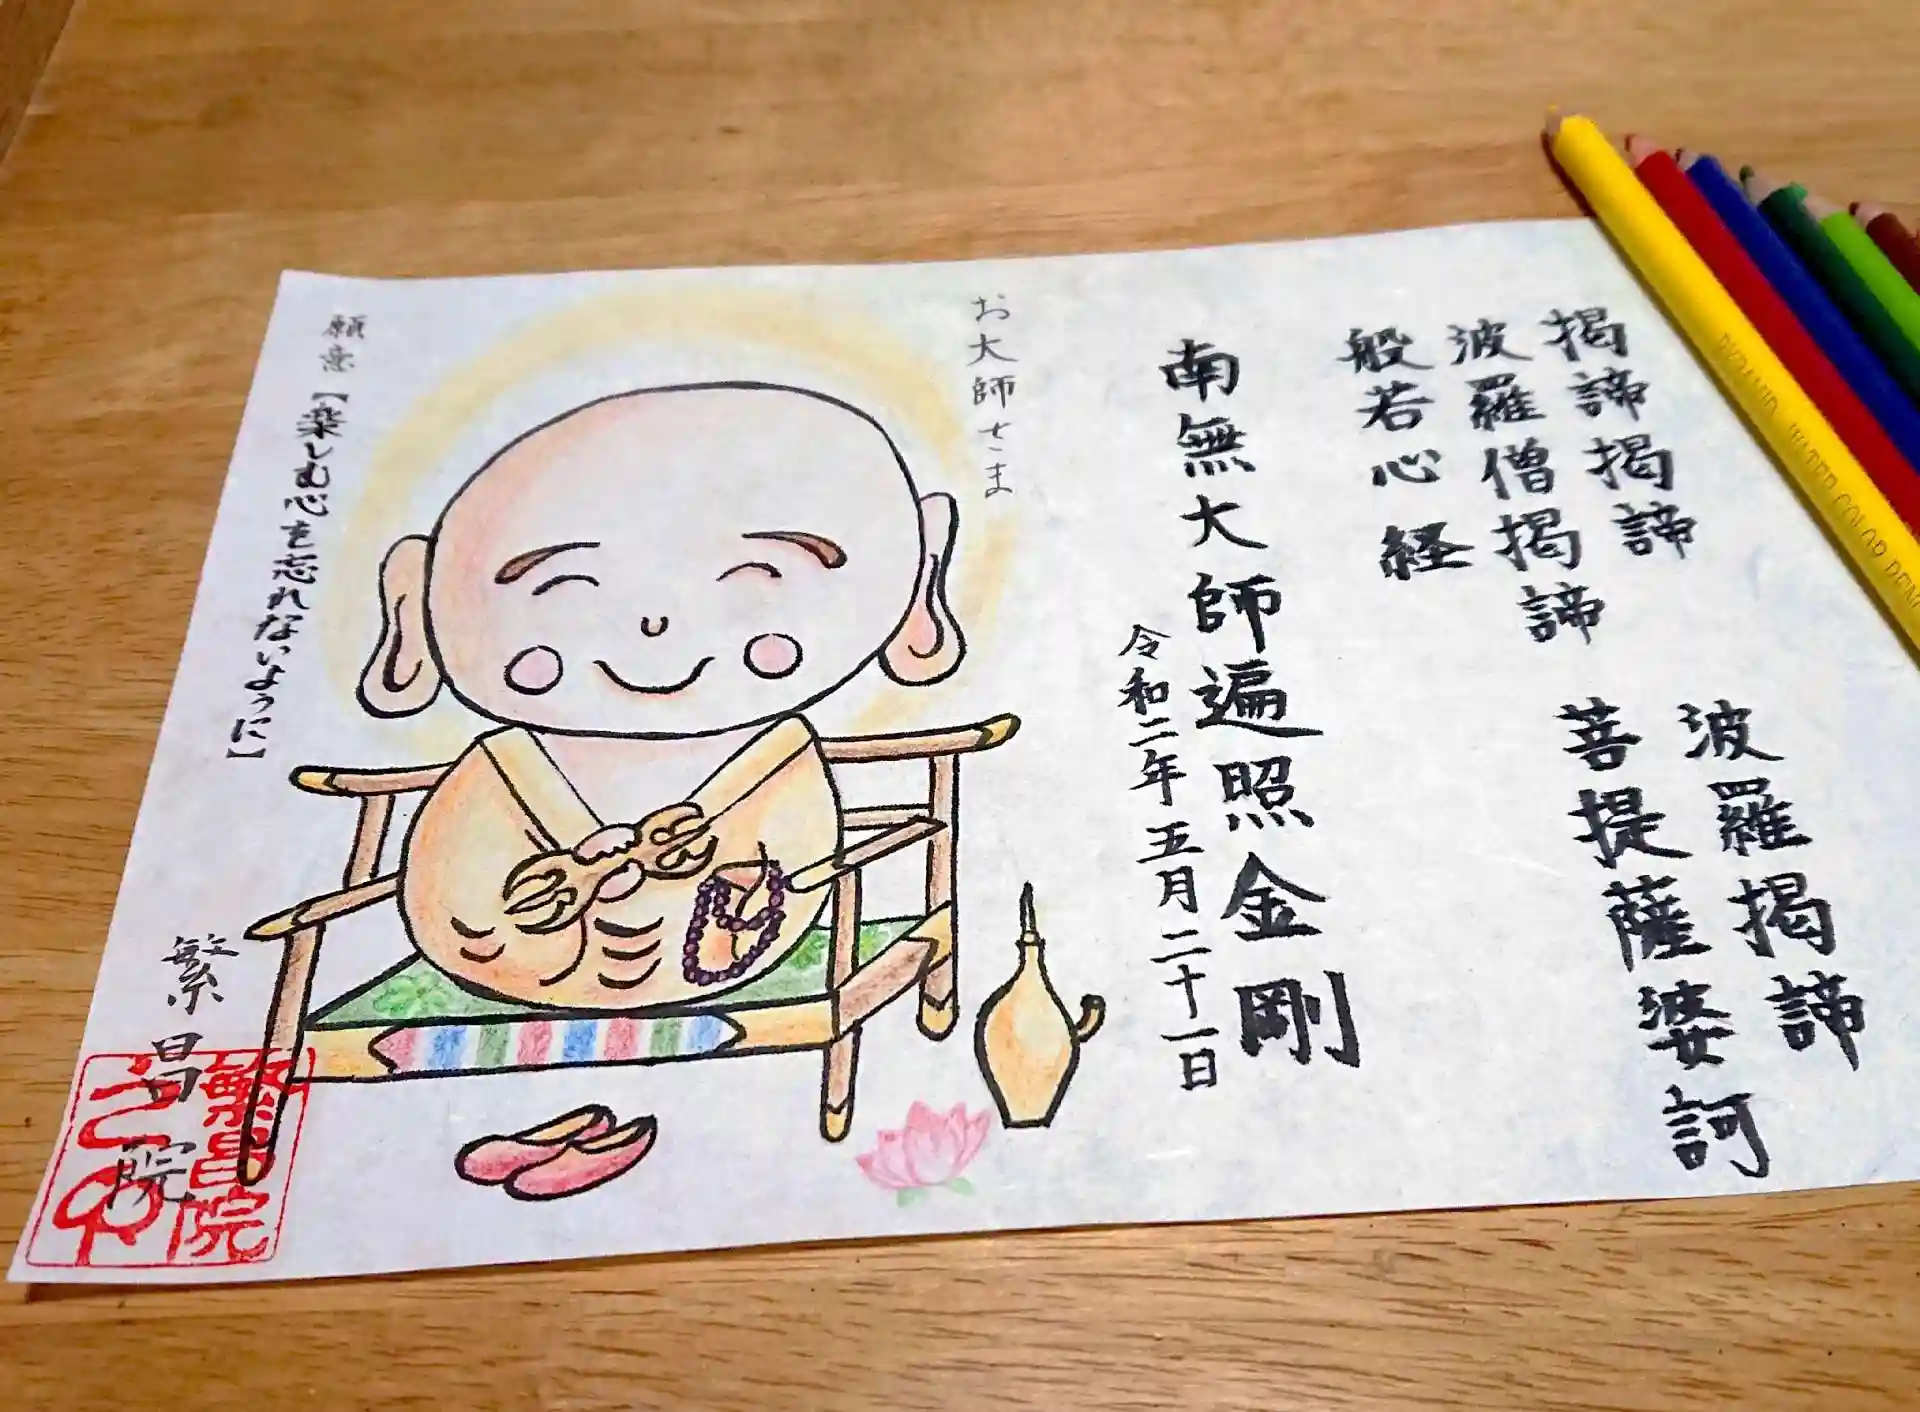 揭諦揭諦　波羅揭諦
波羅僧揭諦　菩提薩婆訶
般若心経
南無大師遍照金剛
令和二年五月二十一日
お大師さま
願意【楽しむ心を忘れないように】
繁昌院
繁昌院
PYRAMID WATER COLOR PENC